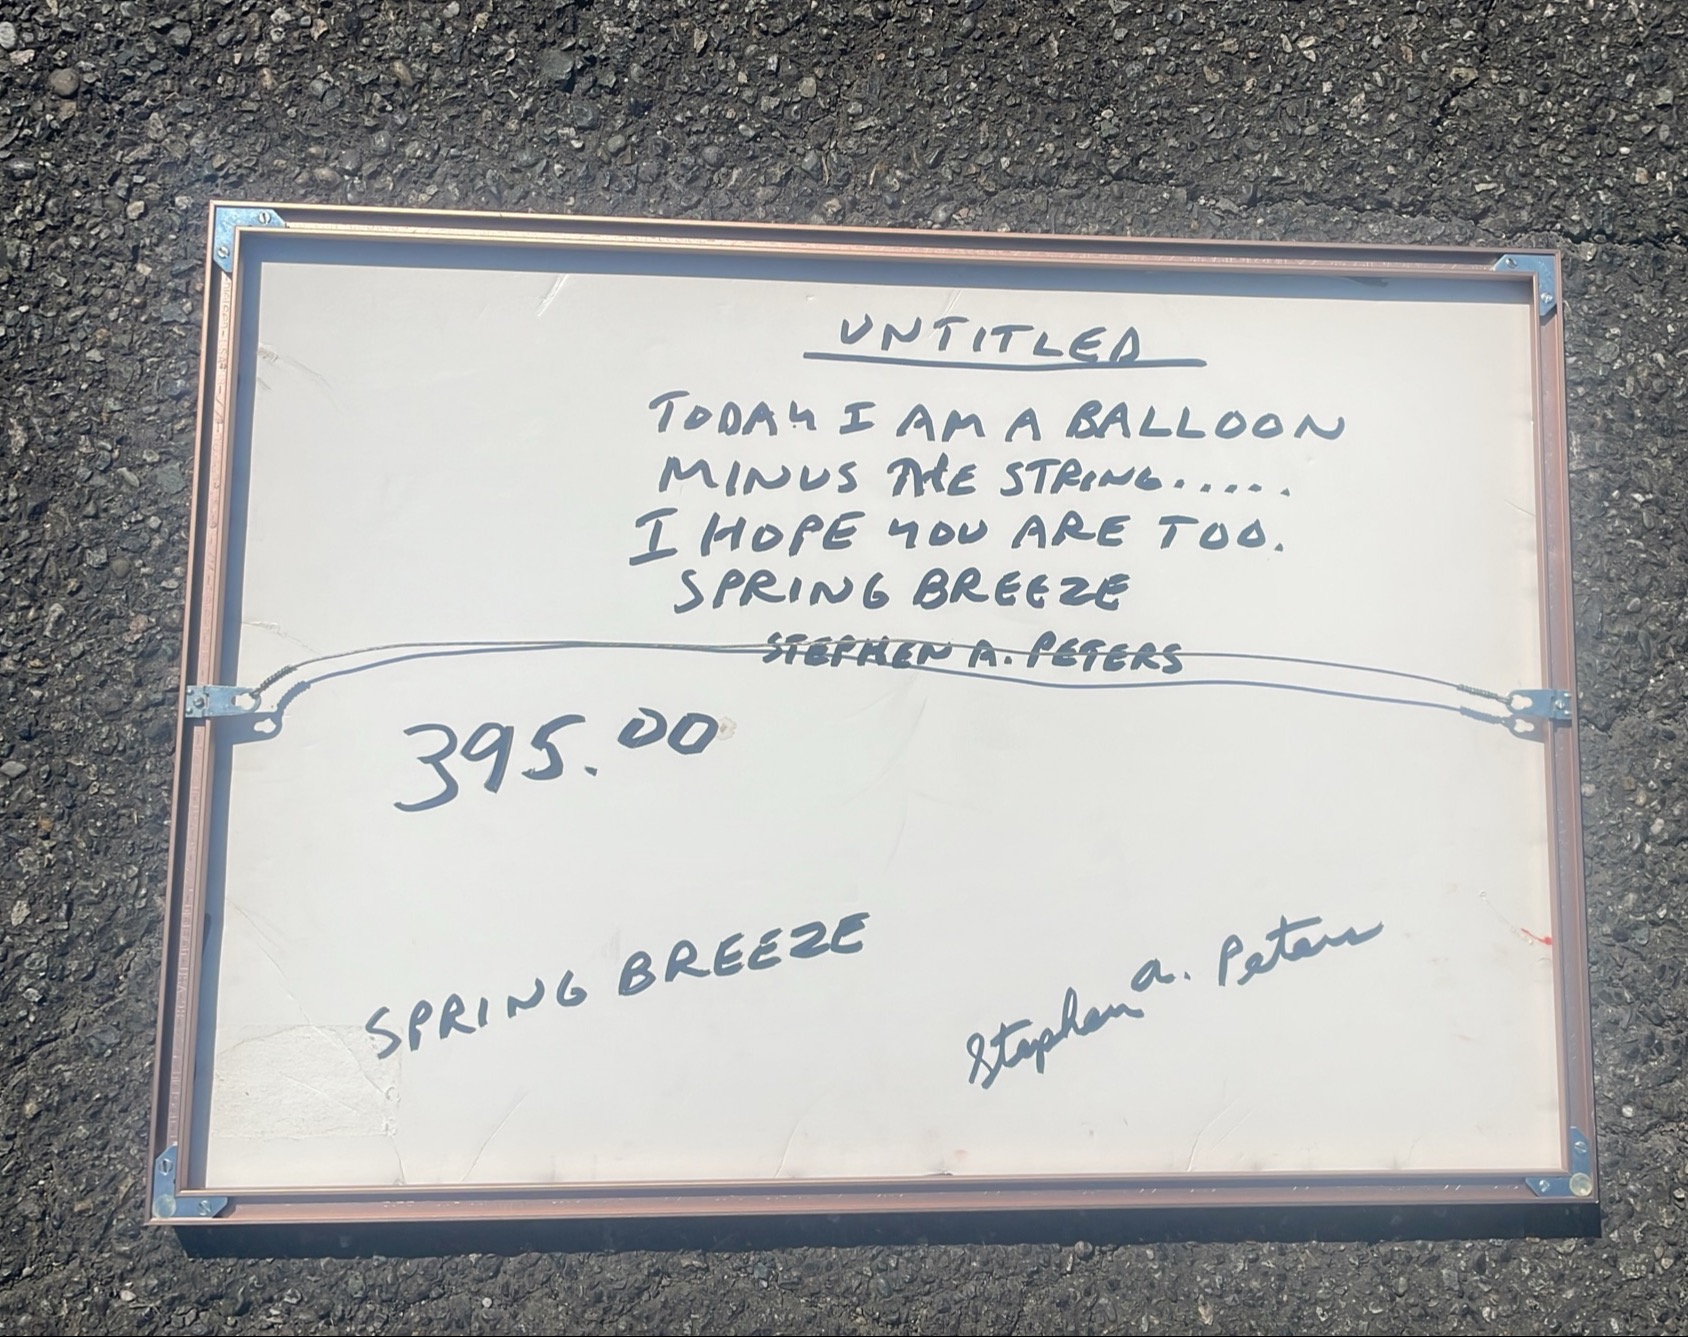 UNTITLED
TODAY I AM A BALLOON
MINUS THE STRING.....
I HOPE YOU ARE TOO.
SPRING BREEZE
STEPHEN A. PETERS
395.00
SPRING BREEZE
Stephen A. Peters